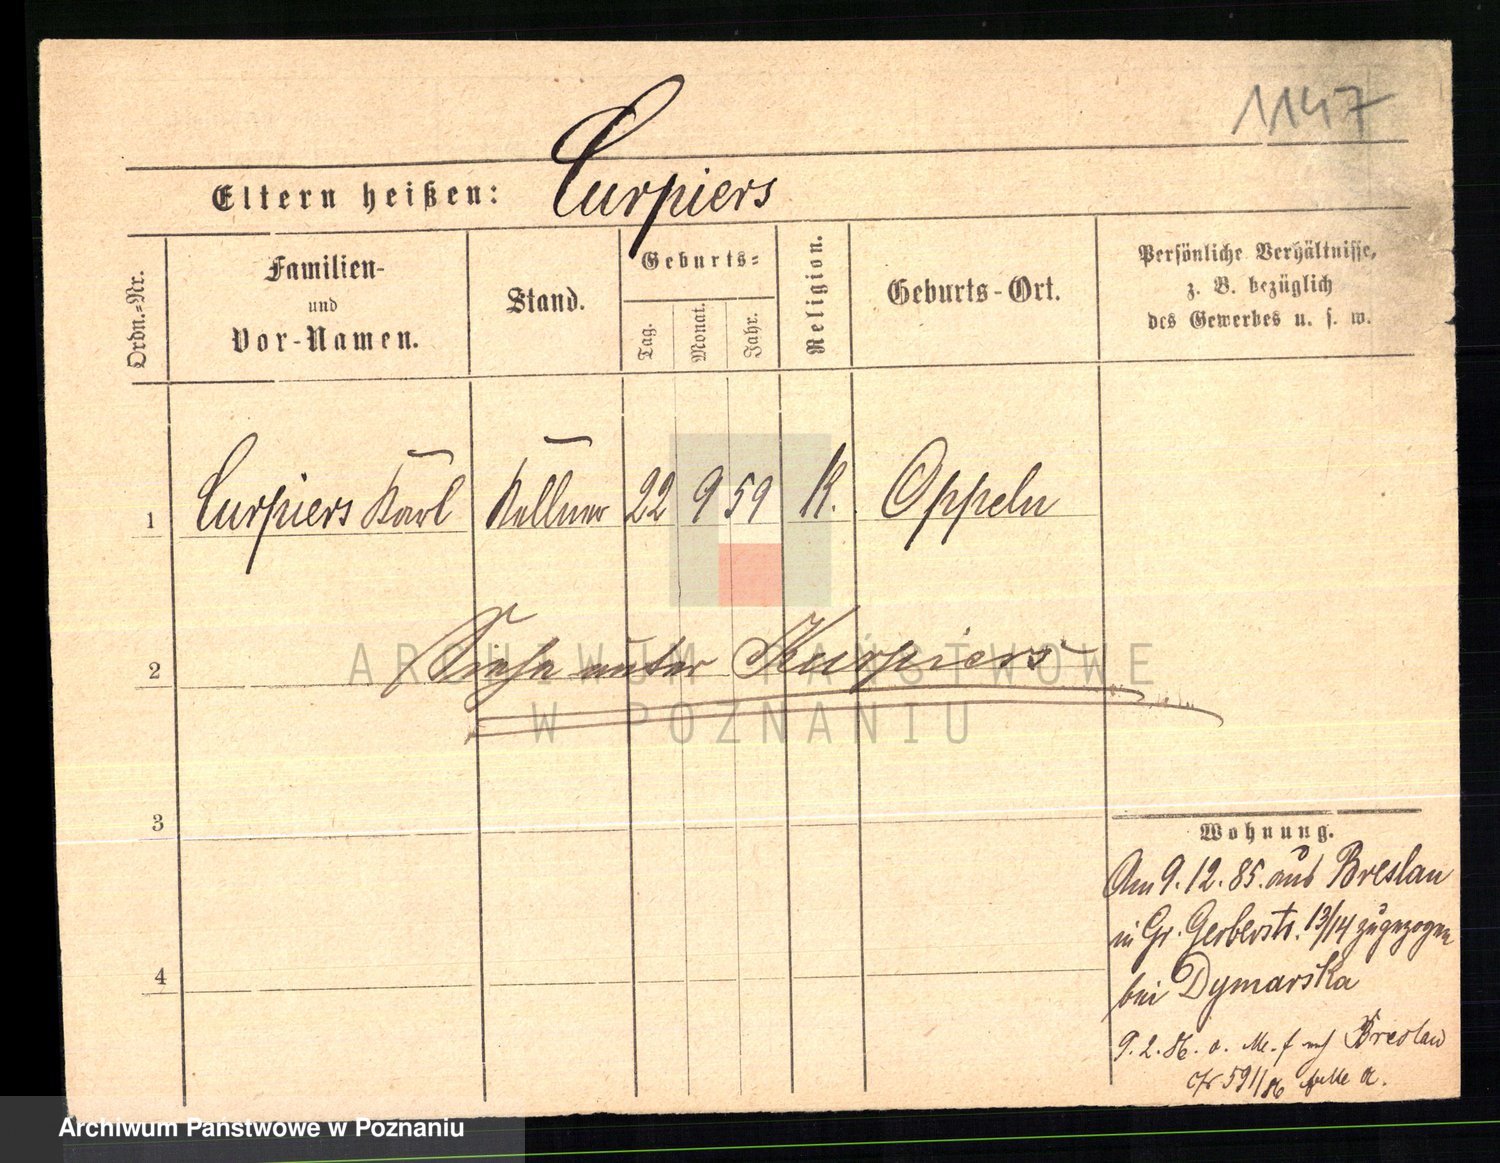 1147
Eltern heißen: Curpiers
Ordn.-Nr.
Familien-
und
Vor-Namen.
Stand.
Geburts-
Tag.
Monat.
Jahr.
Religion.
Geburts-Ort.
Persönliche Verhältnisse,
z. B. bezüglich
des Gewerbes u. s. w.
1 Curpiers Karl Kellner 22 9 59 K. Oppeln
2 Siehe unter Kurpiers
3
4
Wohnung.
Am 9. 12. 85. aus Breslau
in Gr. Gerberstr. 13/14 zugezogen
bei Dymarska
9. 2. 86. o. Me. f Breslau
591/86 a.
ARCHIWUM PAŃSTWOWE
W POZNANIU
Archiwum Państwowe w Poznaniu